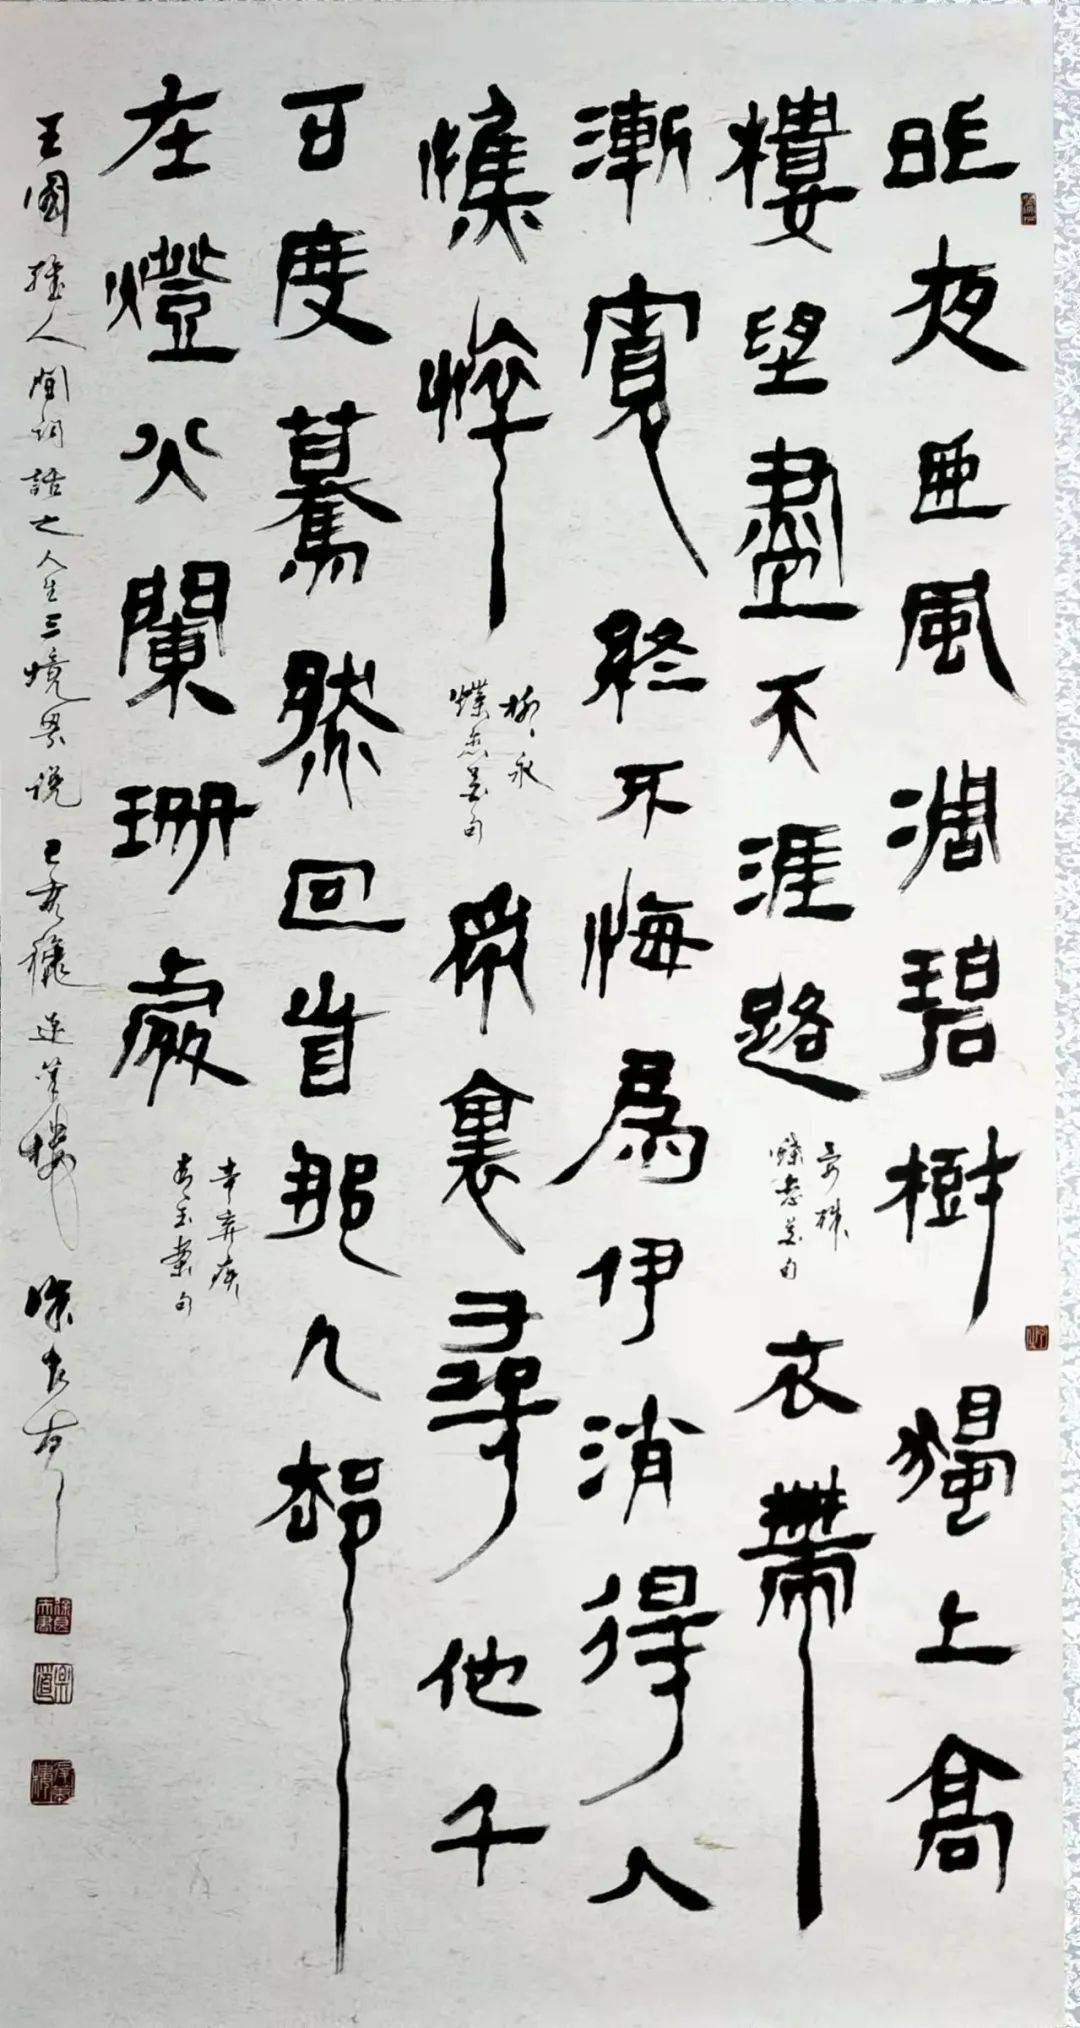 昨夜西風凋碧樹獨上高
樓望盡天涯路
晏殊
蝶恋花句
衣帶
漸寬終不悔為伊消得人
憔悴
柳永
蝶恋花句
衆裏尋他千
百度驀然回首那人却
在燈火闌珊處
辛弃疾
青玉案句
王國維人間詞話之人生三境界説 己亥穐